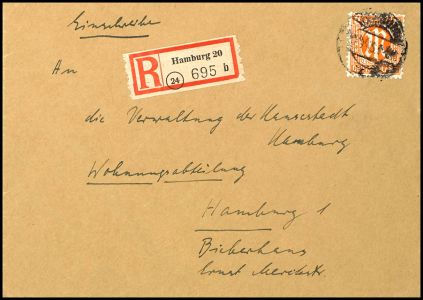 Einschreiben
Hamburg 20
R
24
695 b
An
die Verwaltung der Hansestadt
Hamburg
Wohnungsabteilung
Hamburg 1
Bieberhaus
Ernst Merckstr.